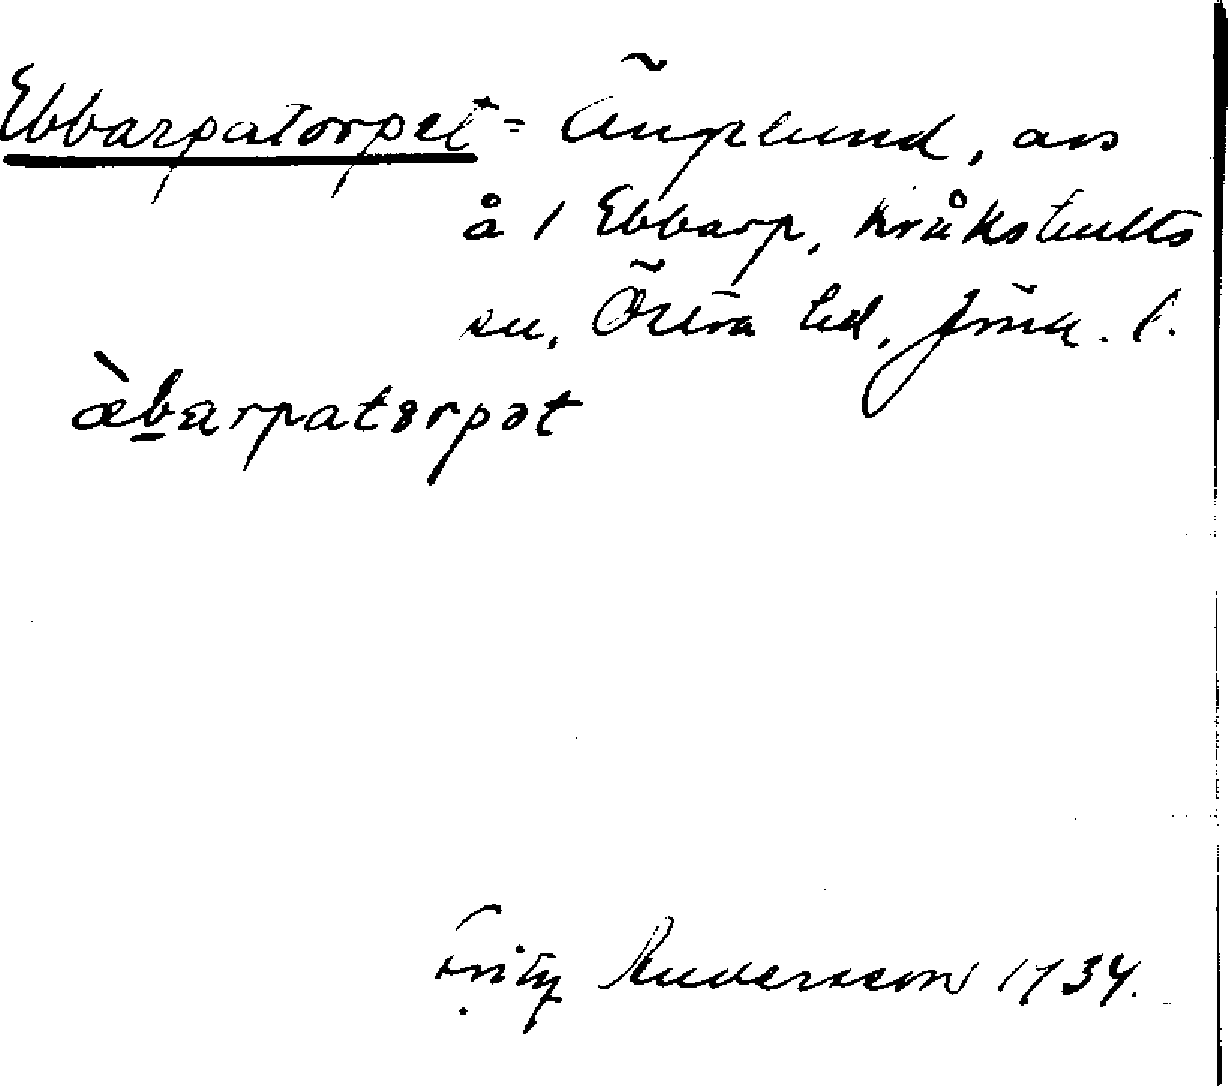 Ebbarpatorpet = Änglund, avs
å 1 Ebbarp, Kråkshults
sn, Östra hd, Jönk. l.
æ̀b̲arpatorpət
Fritz Andersson 1934.